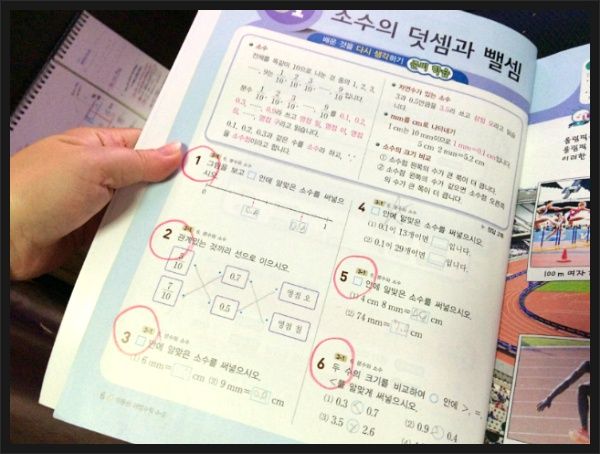 소수의 덧셈과 뺄셈
배운 것을 다시 생각하기 준비 학습
• 소수
전체를 똑같이 10으로 나눈 것 중의 1, 2, 3,
……, 9는 1/10, 2/10, 3/10, ……, 9/10입니다.
분수 1/10, 2/10, 3/10, ……, 9/10를 0.1, 0.2,
0.3, ……, 0.9라 쓰고 영점 일, 영점 이, 영점
삼, ……, 영점 구라고 읽습니다.
0.1, 0.2, 0.3과 같은 수를 소수라 하고, '.'
을 소수점이라고 합니다.
• 자연수가 있는 소수
3과 0.5만큼을 3.5라 쓰고 삼점 오라고 읽습
니다.
• mm를 cm로 나타내기
1 cm는 10 mm이므로 1 mm=0.1 cm입니다.
5 cm 2 mm=5.2 cm
• 소수의 크기 비교
① 소수점 왼쪽의 수가 큰 쪽이 더 큽니다.
② 소수점 왼쪽의 수가 같으면 소수점 오른쪽
의 수가 큰 쪽이 더 큽니다.
정답 2쪽
1 3-1 6. 분수와 소수
그림을 보고 □ 안에 알맞은 소수를 써넣으
시오.
0 1
2 3-1 6. 분수와 소수
관계있는 것끼리 선으로 이으시오.
5/10 0.7 영점 오
7/10 0.5 영점 칠
3 3-1 6. 분수와 소수
□ 안에 알맞은 소수를 써넣으시오.
(1) 6 mm= cm (2) 9 mm= cm
4 3-1 6. 분수와 소수
□ 안에 알맞은 소수를 써넣으시오.
(1) 0.1이 13개이면 입니다.
(2) 0.1이 29개이면 입니다.
5 3-1 6. 분수와 소수
□ 안에 알맞은 소수를 써넣으시오.
(1) 4 cm 8 mm= cm
(2) 74 mm= cm
6 3-1 6. 분수와 소수
두 수의 크기를 비교하여 ○ 안에 >, =,
<를 알맞게 써넣으시오.
(1) 0.3 < 0.7 (2) 0.9 0.4
(3) 3.5 > 2.6 (4)
6
올림픽
100 m 여자